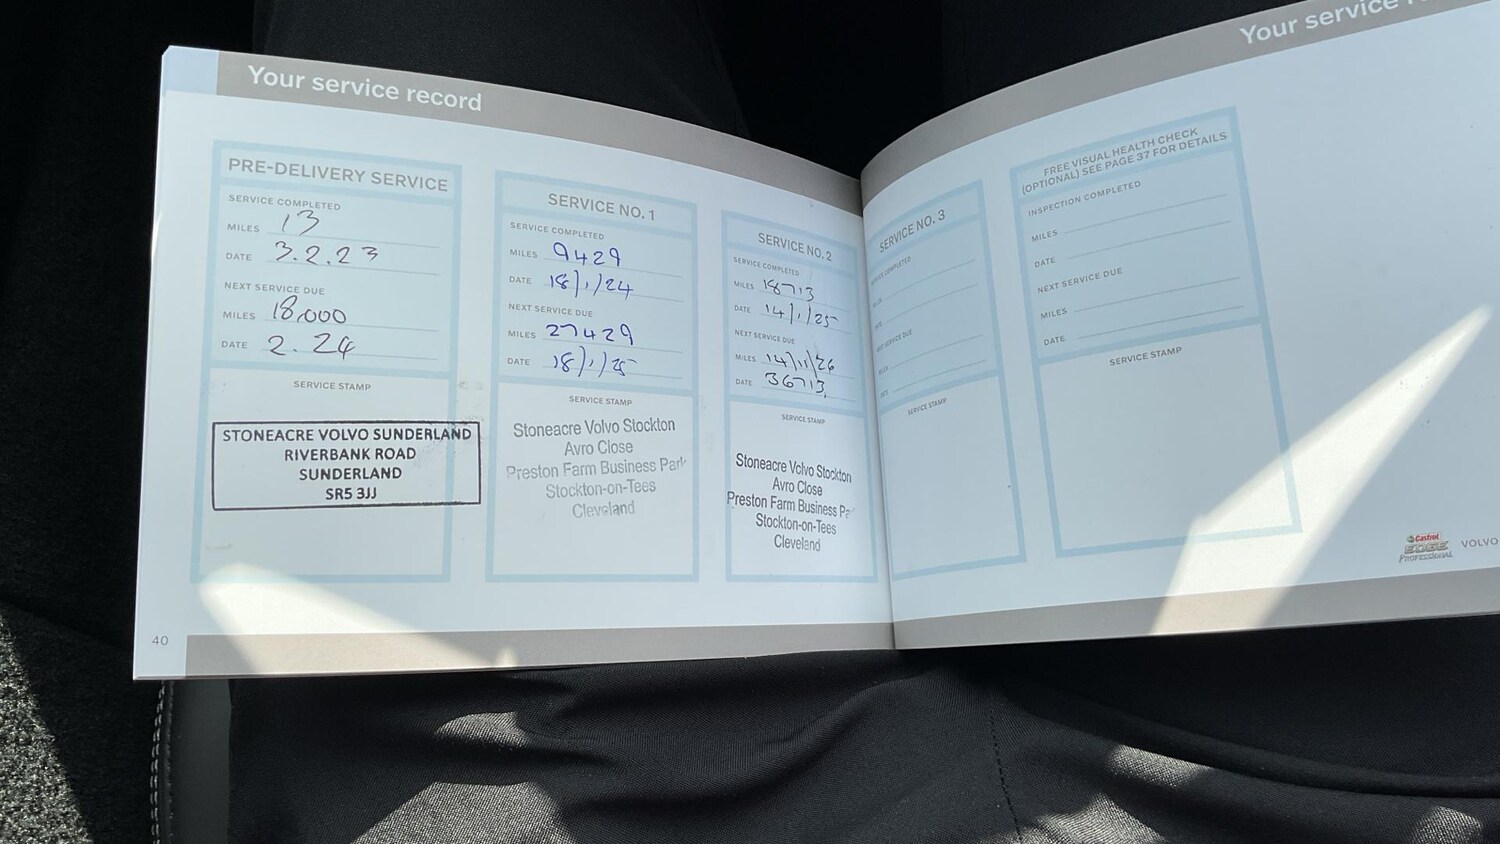 Your service record
PRE-DELIVERY SERVICE
SERVICE COMPLETED
MILES 13
DATE 3.2.23
NEXT SERVICE DUE
MILES 18,000
DATE 2.24
SERVICE STAMP
STONEACRE VOLVO SUNDERLAND
RIVERBANK ROAD
SUNDERLAND
SR5 3JJ
SERVICE NO. 1
SERVICE COMPLETED
MILES 9429
DATE 18/1/24
NEXT SERVICE DUE
MILES 27429
DATE 18/1/25
SERVICE STAMP
Stoneacre Volvo Stockton
Avro Close
Preston Farm Business Park
Stockton-on-Tees
Cleveland
SERVICE NO. 2
SERVICE COMPLETED
MILES 18713
DATE 14/1/25
NEXT SERVICE DUE
MILES 14/1/26
DATE 36713
SERVICE STAMP
Stoneacre Volvo Stockton
Avro Close
Preston Farm Business Pa
Stockton-on-Tees
Cleveland
40
Your service
SERVICE NO. 3
SERVICE COMPLETED
MILES
DATE
NEXT SERVICE DUE
MILES
DATE
SERVICE STAMP
FREE VISUAL HEALTH CHECK
(OPTIONAL) SEE PAGE 37 FOR DETAILS
INSPECTION COMPLETED
MILES
DATE
NEXT SERVICE DUE
MILES
DATE
SERVICE STAMP
Castrol
EDGE
PROFESSIONAL
VOLVO